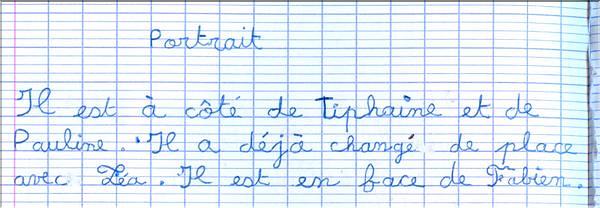 Portrait
Il est à côté de Tiphaine et de
Pauline. Il a déjà changé de place
avec Léa. Il est en face de Fabien.